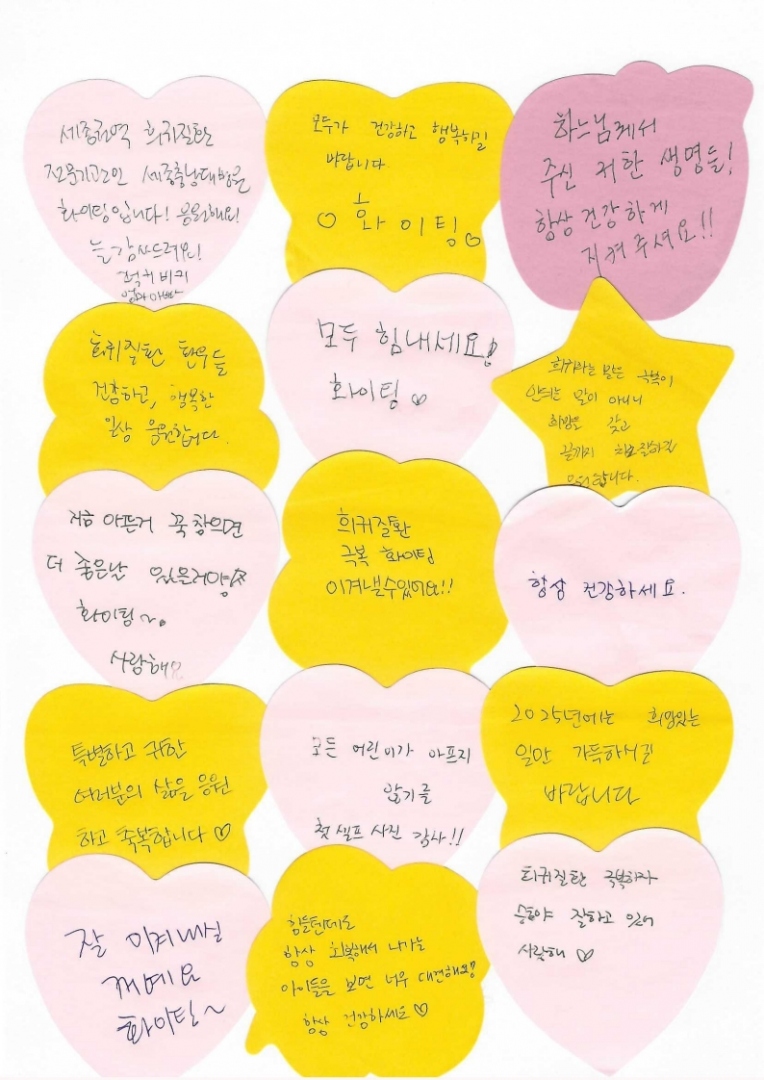 세종권역 희귀질환
전문기관인 세종충남대병원
화이팅입니다! 응원해요!
늘 감사드려요!
엄마아빠
모두가 건강하고 행복하길
바랍니다.
♡ 화이팅♡
하느님께서
주신 귀한 생명들!
항상 건강하게
지켜주셔요!!
희귀질환 환우들
건강하고, 행복한
일상 응원합니다.
모두 힘내세요!
화이팅♡
희귀라는 말은 극복이
안되는 말이 아니니
희망을 갖고
끝까지
응원합니다.
지금 아픈거 꾹 참으면
더 좋은날
화이팅~.
사랑해요
희귀질환
극복 화이팅
이겨낼수있어요!!
항상 건강하세요.
특별하고 귀한
여러분의 삶을 응원
하고 축복합니다♡
모든 어린이가 아프지
않기를
첫 셀프 사진 감사!!
2025년에는 희망있는
일만 가득하시길
바랍니다
잘 이겨내실
꺼예요
화이팅~
힘들텐데도
항상 회복해서 나가는
아이들을 보면 너무 대견해요!
항상 건강하세요♡
희귀질환 극복하자
승하야 잘하고 있어
사랑해♡